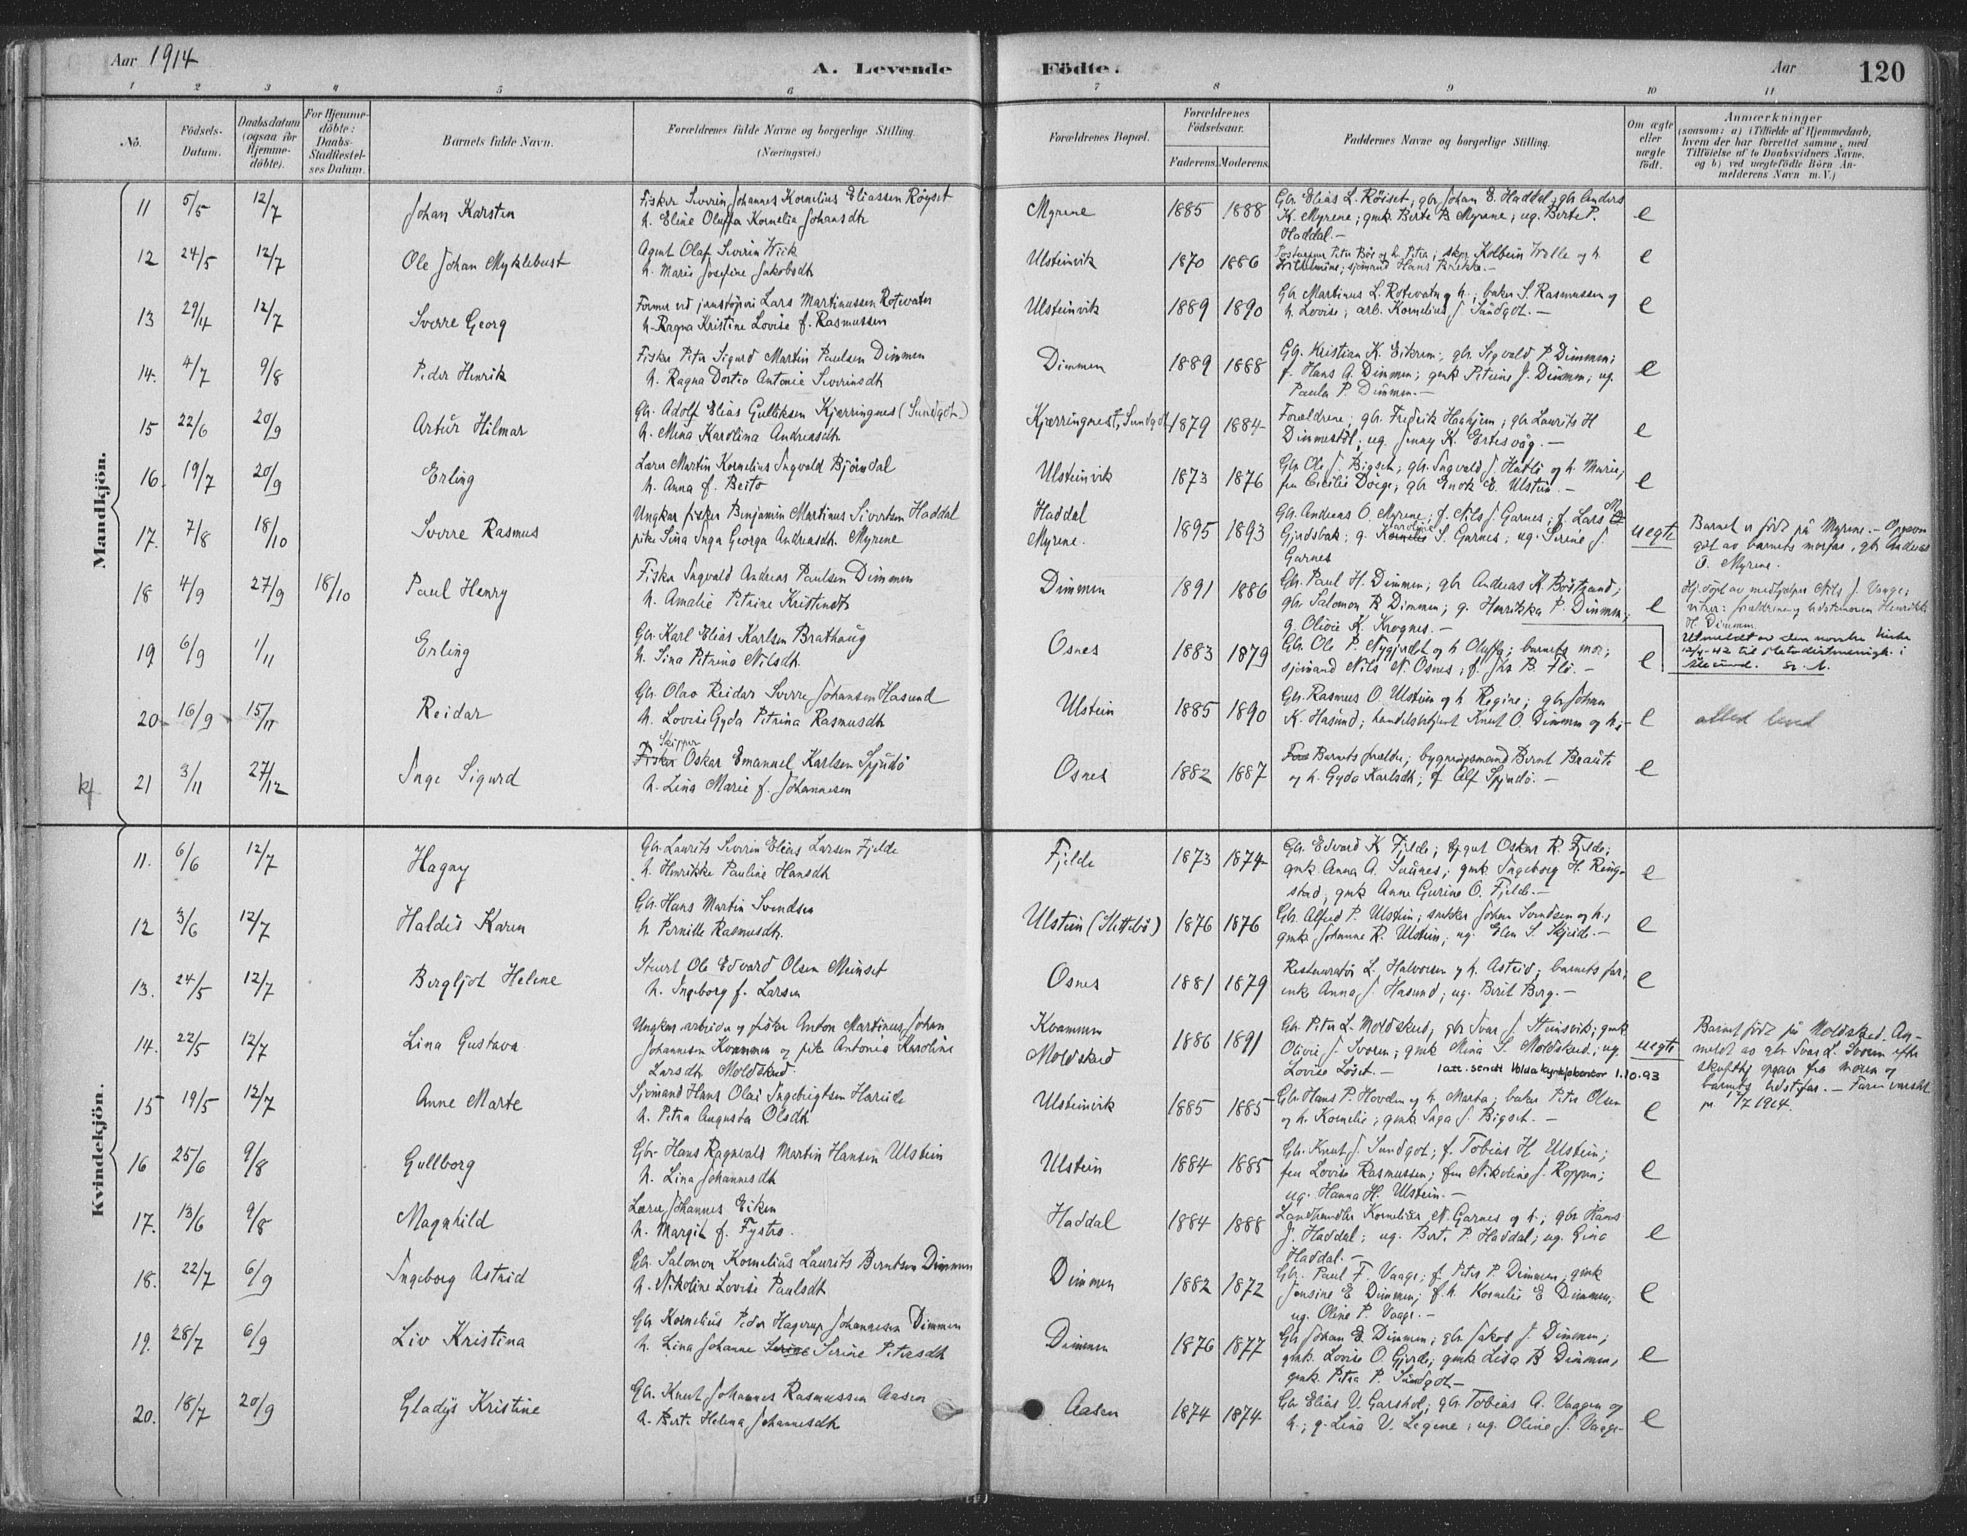 Aar 1914
A. Levende
Födte.
Aar
120
1 2 3 4 5 6 7 8 9 10 11
No.
Födsels-
Datum.
Daabsdatum
(ogsaa for
Hjemme-
döbte).
For Hjemme-
döbte:
Daabs-
Stadfæstel-
ses Datum.
Barnets fulde Navn.
Forældrenes fulde Navne og borgerlige Stilling.
(Næringsvei.)
Forældrenes Bopæl.
Forældrenes
Födselsaar.
Faderens. Moderens.
Faddernes Navne og borgerlige Stilling.
Om ægte
eller
uægte
födt.
Anmærkninger
(saasom: a) i Tilfælde af Hjemmedaab,
hvem der har forrettet samme, med
Tilföielse af to Daabsvidners Navne,
og b) ved uægtefödte Börn An-
melderens Navn m. V.)
Mandkjön.
11 5/5 12/7 Johan Karsten
Fisker Severin Johannes Kornelius Eliassen Röyset
h. Eline Oluffa Kornelia Johansdh
Myrene 1885 1888
Gbr Elias L. Röiset; gbr Johan E. Haddal; gbr Anders
K. Myrene; gmk Berte B. Myrene; ug. Berte P.
Haddal.-
e
12 24/5 12/7 Ole Johan Myklebust
Agent Olaf Severin Wiik
h. Marie Josefine Jakobsdh
Ulsteinvik 1870 1886
h. Petra; skpr. Kolbein Wolle og h.
Wilhelmine; sjömand Hans Brekke.-
e
13 29/4 12/7 Sverre Georg
Former ved jernstöperi Lars Martinussen Rotevatn
h. Ragna Kristine Lovise f. Rasmussen
Ulsteinvik 1889 1890
Gbr Martinus L. Rotevatn og h.; baker S. Rasmussen og
h. Lovise; arb. Kornelius J. Sundgot.-
e
14. 4/7 9/8 Peder Henrik
Fisker Peter Sigurd Martin Paulsen Dimmen
h. Ragna Dortea Antonie Severinsdh
Dimmen 1889 1888
Gbr. Kristian K. Eikrem; gbr. Sigvald P. Dimmen;
f. Hans A. Dimmen; gmk Petrine J. Dimmen; ug.
Paula P. Dimmen.-
e
15 22/6 20/9 Artur Hilmar
Gbr. Adolf Elias Gulliksen Kjærringnes (Sundgot.)
h. Mina Karolina Andreasdh
Kjærringnest, Sundgot 1879 1884
Forældrene; gbr. Fredrik Hashjem; gbr Laurits H
Dimmestöl; ug. Jenny K. Ertesvåg.-
e
16. 19/7 20/9 Erling
Lærer Martin Kornelius Ingvald Bjöndal
h. Anna f. Beito
Ulsteinvik 1873 1876
Gbr. Ole J. Bigset; gbr. Ingvald J. Hatlö og h. Marie;
fru Cecilie Doege; gbr Enok E. Ulstein.-
e
17. 7/8 18/10 Sverre Rasmus
Ungkar fisker Benjamin Martinus Sivertsen Haddal
pike Sina Inga Georga Andreasdh. Myrene
Haddal
Myrene. 1895 1893
Gbr. Andreas O. Myrene; f. Nils J. Garnes; f. Lars
Gjerdsbak; g. Karoline S. Garnes; ug. Serine J.
Garnes
uegte
Barnet er födt på Myrene.- Opgon
gåt av barnets morfar, gbr Andreas
O. Myrene.
18 4/9 27/9 18/10 Paul Henry
Fisker Ingvald Andreas Paulsen Dimmen
h. Amalie Petrine Kristinedh
Dimmen 1891 1886
Gbr. Paul H. Dimmen; gbr Andreas K. Böstrand;
gbr. Salomon B. Dimmen; g. Henrikka P. Dimmen;
g. Olivie K. Krognes.-
e
Hj. döpt av medhjelper Nils J. Vaage;
vitner: forældrene og bedstemoren Henrikke
H. Dimmen.
19 6/9 1/11 Erling
Gbr. Karl Elias Karlsen Brathaug
h. Sina Petrina Nilsdh
Osnes 1883 1879
Gbr. Ole P. Nygjerdet og h Oluffa; barnets mor;
sjömand Nils N. Osnes; f. Jhs B. Flö.-
e
Utmeldt av den norske kirke
12/4-42 til Metodistmenigh. i
Ålesund.
20 16/9 15/11 Reidar
Gbr. Olav Reidar Sverre Johansen Hasund
h. Lovise Gyda Petrina Rasmusdh
Ulstein 1885 1890
Gbr. Rasmus O. Ulstein og h Regine; gbr Johan
K. Hasund; handelsbetjent Knut O Dimmen og h.-
e
kf. 21 3/11 27/12 Inge Sigurd
Skipper
Fisker Oskar Emanuel Karlsen Spjudö
h. Lina Marie f. Johannesen
Osnes 1882 1887
Barnets forældre; bygningsmand Bernt Braute
og h. Gyda Karlsdh; f. Alf Spjudö.-
e
Kvindekjön.
11. 6/6 12/7 Hagny
Gbr. Laurits Severin Elias Larsen Fjelde
h. Henrikke Pauline Hansdh
Fjelde 1873 1874
Gbr. Edvard K Fjelde; Oskar R. Fjelde;
gmk Anna A. Sunnes; gmk Ingeborg H. Ringe-
stad; gmk Anne Gurine O. Fjelde.-
e
12 3/6 12/7 Haldis Karen
Gbr. Hans Martin Svendsen
h. Pernille Rasmusdh.
Ulstein (Slettebö) 1876 1876
Gbr. Alfred P. Ulstein; snekker Johan Svendsen og h.;
gmk Johanne R. Ulstein; ug. Elen S. Skjeide.-
e
13. 24/5 12/7 Bergljot Helene
Stuert Ole Edvard Olsen Meinset
h. Ingeborg f. Larsen
Osnes 1881 1879
Restauratör L. Halvorsen og h. Astrid; barnets far;
enke Anna J. Hasund; ug. Berit Berg.-
e
14. 22/5 12/7 Lina Gustava
Ungkar arbeider og fisker Anton Martinus Johan
Johannesen Kvammen og pike Antonia Karoline
Larsdh Moldskred.
Kvammen
Moldskred 1886 1891
Gbr. Peter L. Moldskred; gbr Ivar J. Steinsvik; gmk
Olivie J. Svoren; gmk Mina S. Moldskred; ug.
Lovise Löset.-
att. sendt Volda kyrkjekontor 1.10.93
uegte
Barnet födt på Moldskred. An-
meldt av gbr Ivar L. Svoren efter
skriftlig opgave fra moren og
barnets bedstefar.- Faren varslet
pr. 17/7 1914.
15 19/5 12/7 Anne Marte
Sjömand Hans Olai Ingebrigtsen Hareide
h. Petra Augusta Olsdh
Ulsteinvik 1885 1885
Gbr Hans P. Hovden og h. Marta; baker Peter Olsen
og h. Kornelie; gmk Inga J. Bigset.-
e
16 25/6 9/8 Gullborg
Gbr. Hans Ragnvald Martin Hansen Ulstein
h. Lina Johannesdh
Ulstein 1884 1885
Gbr. Knut J. Sundgot; f. Tobias H Ulstein;
fru Lovise Rasmussen; fru Nikoline J. Roppen;
ug. Hanna H. Ulstein.-
e
17. 13/6 9/8 Magnhild
Lærer Johannes Eiken
h. Margit f. Fystro.
Haddal 1884 1888
Landhandler Kornelius N. Garnes og h.; gbr Hans
J. Haddal; ug. Berte P. Haddal; ug. Lina
Haddal.-
e
18. 22/7 6/9 Ingeborg Astrid
Gbr. Salomon Kornelius Laurits Berntsen Dimmen
h. Nikoline Lovise Paulsdh
Dimmen 1882 1872
Gbr. Paul F. Vaage; f. Peter P. Dimmen; gmk
Jensine E Dimmen; f.h. Kornelie E Dimmen;
ug. Oline P. Vaage.-
e
19. 28/7 6/9 Liv Kristina
Gbr Kornelius Peder Hagerup Johannesen Dimmen
h. Lina Johanne Serine Petersdh
Dimmen 1876 1877
Gbr Johan E. Dimmen; gbr Jakob J. Dimmen;
gmk. Lovise O. Gjerde; gmk Lisa B. Dimmen;
gmk Petra P. Sundgot.-
e
20. 18/7 20/9 Gladys Kristine
Gbr. Knut Johannes Rasmussen Aasen
h. Berte Helena Johannesdh
Aasen 1874 1874
Gbr Elias V. Garshol; gbr Tobias A. Vaagen og
h.; g. Lina V. Legene; ug. Oline J. Vaage-
e